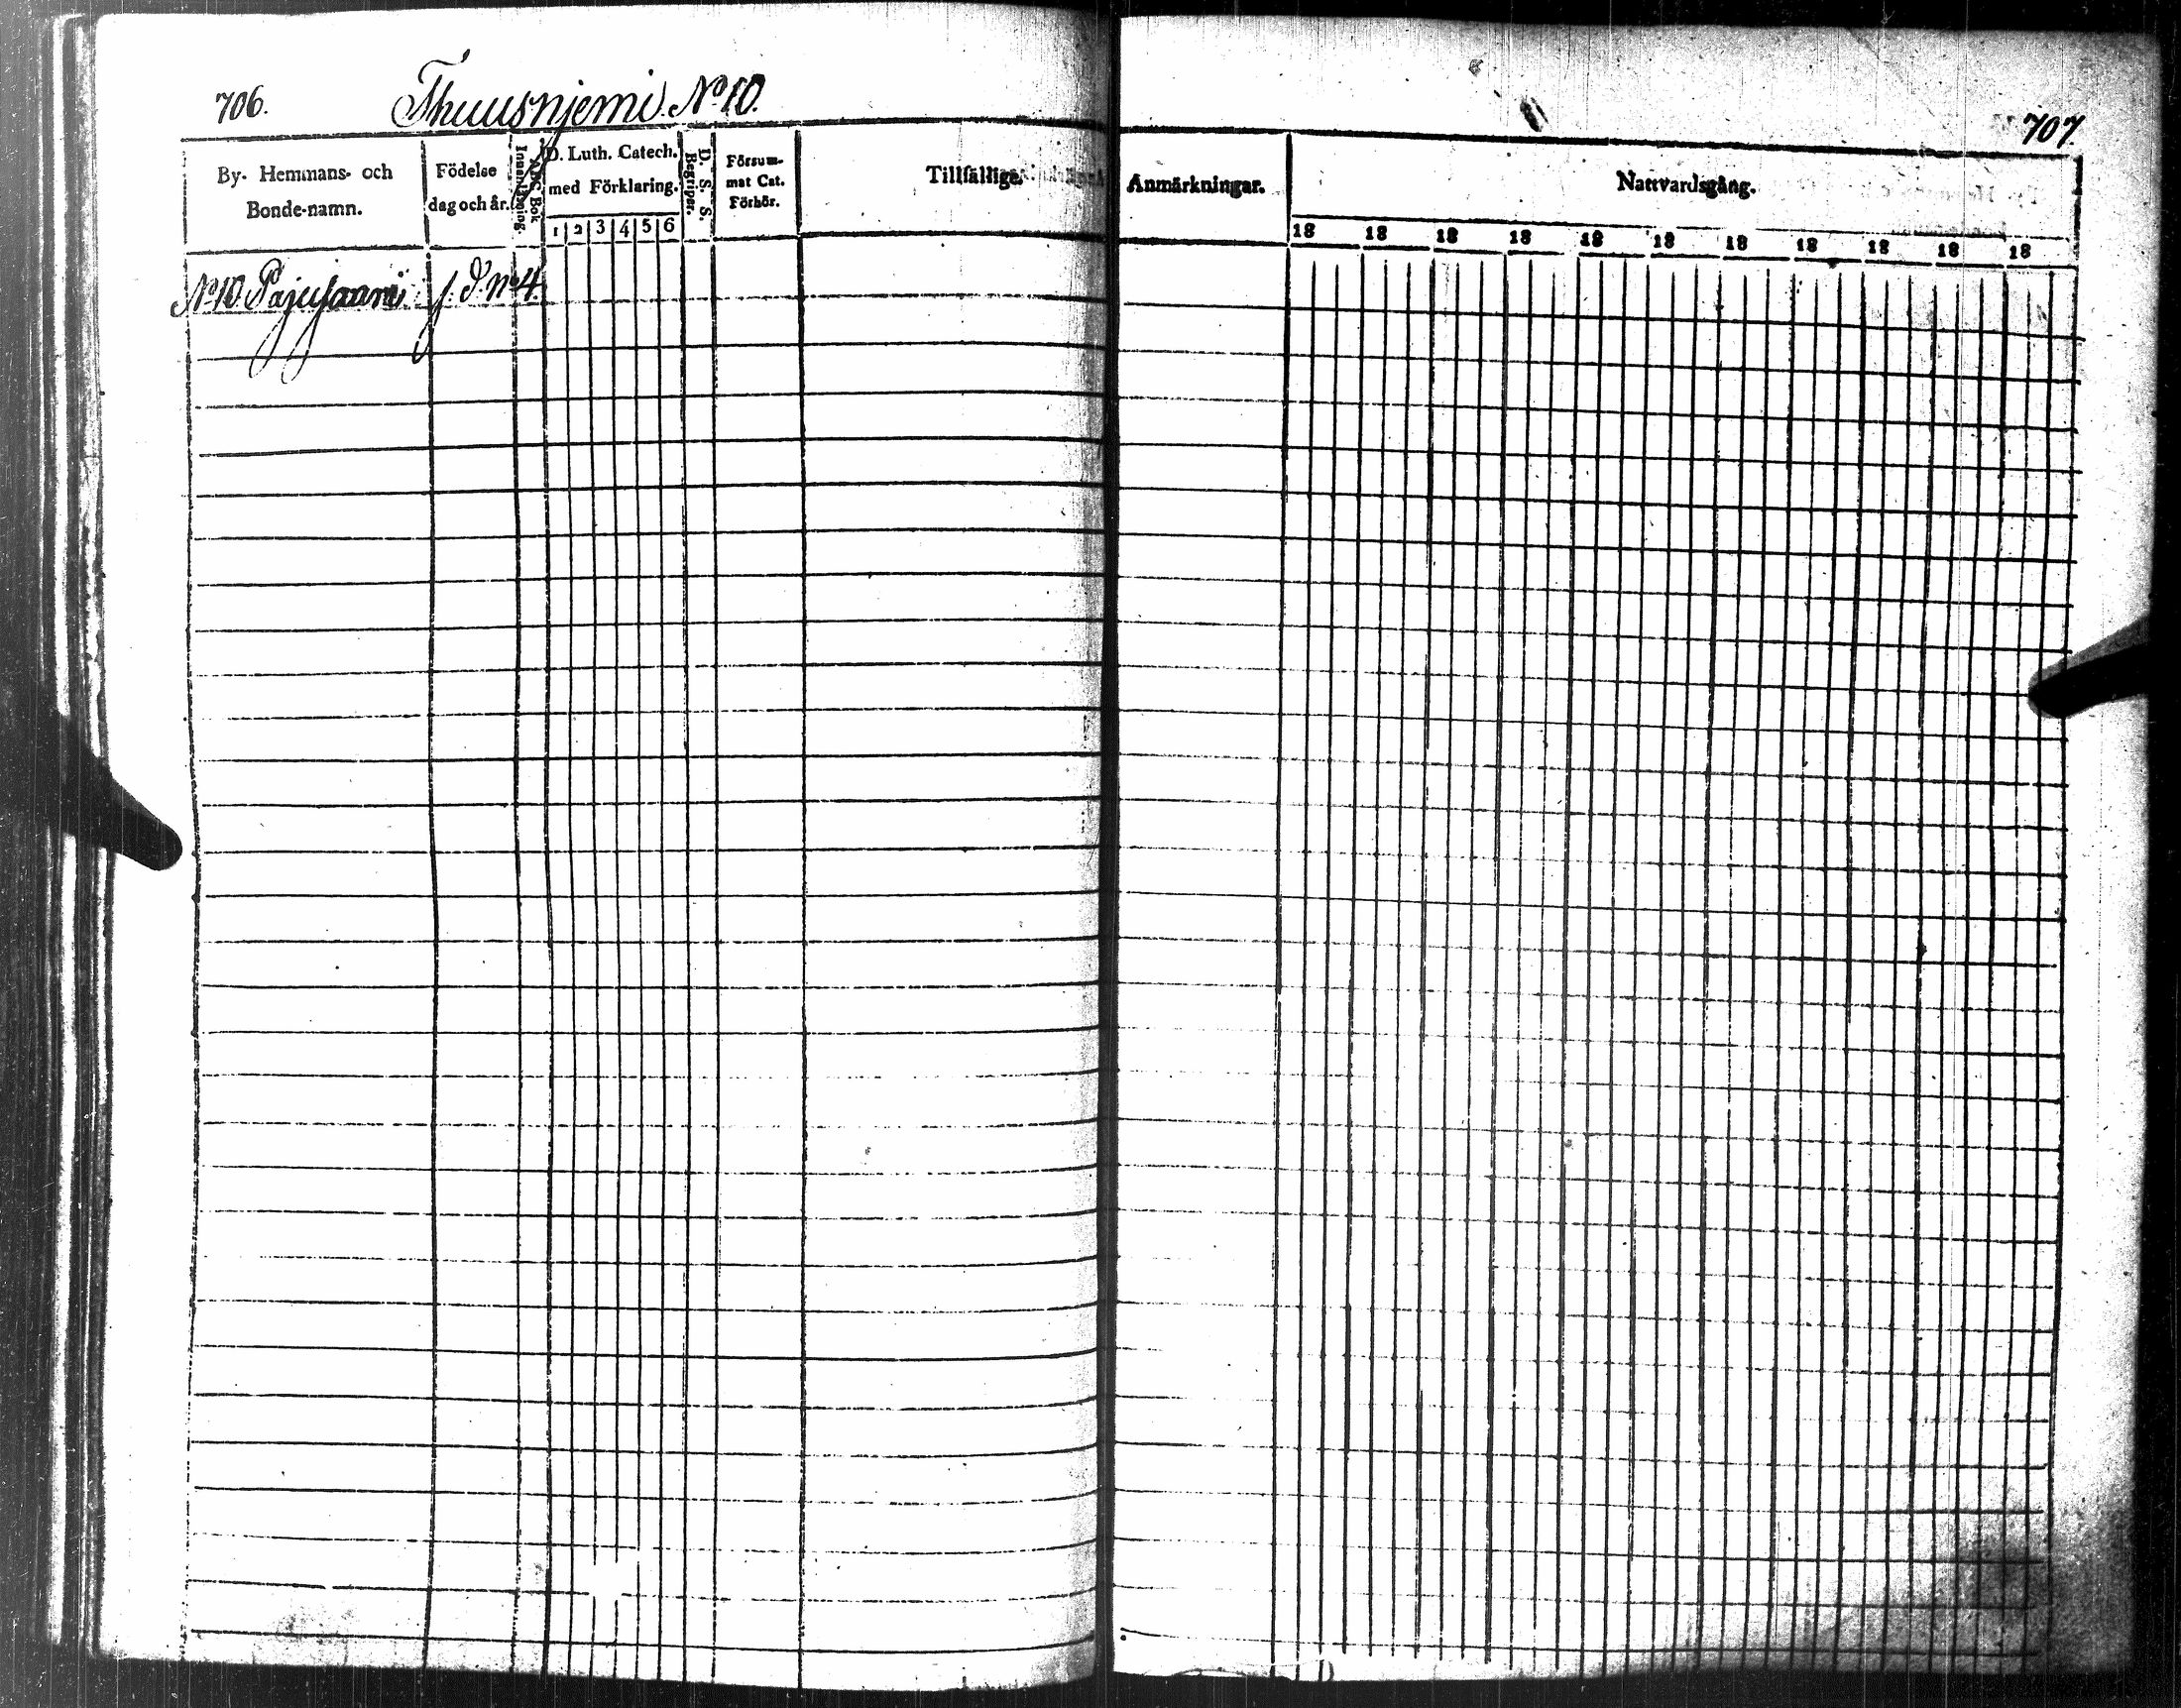 706. Thuusnjemi No 10.
By- Hemmans- och
Bonde-namn.
Födelse
dag och år.
Innanläsning.
ABC Bok
D. Luth. Catech.
med Förklaring.
1 2 3 4 5 6
D. S. S.
Begriper.
Försum-
mat Cat.
Förhör.
Tillfällige
No 10 Pajusaari f. d. No 4.
707.
Anmärkningar.
Nattvardsgång.
18 18 18 18 18 18 18 18 18 18 18